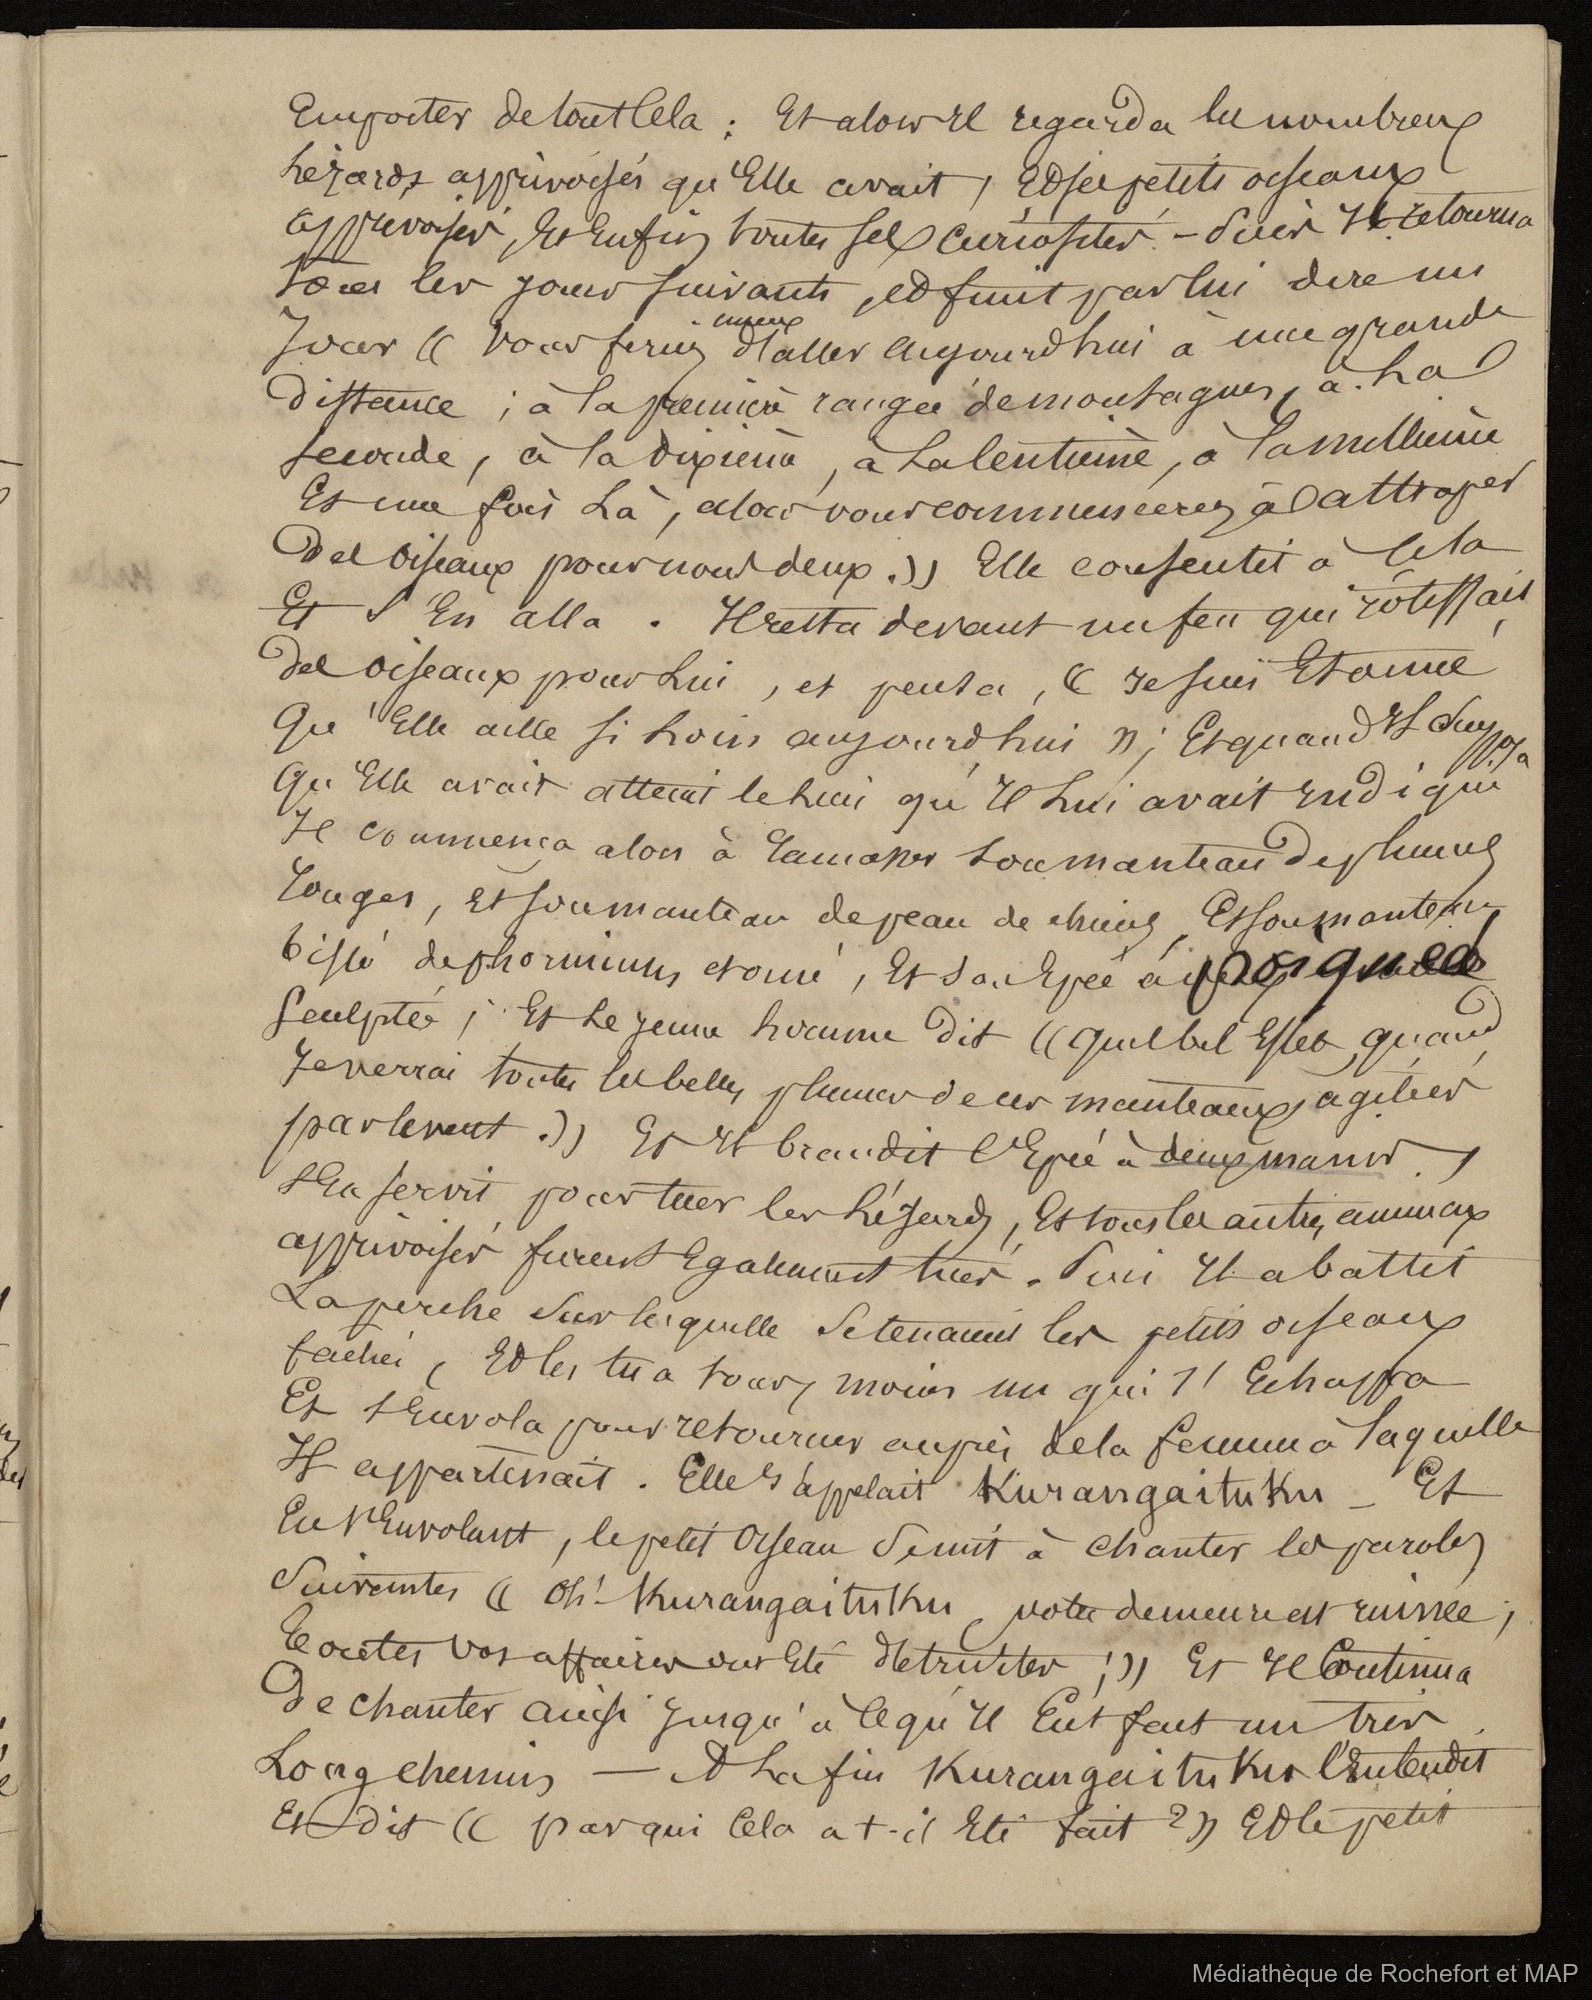 Emporter de tout cela : Et alors Il regarda les nombreux
Lézards apprivoisés qu'Elle avait, Et des petits oiseaux
apprivoisés, Et Enfin toutes ses curiosités. - Puis Il retourna
tous les jours suivants, et finit par lui dire un
Jour (( vous feriez mieux d'aller aujourd'hui à une grande
distance ; à la première rangée de montagnes, à la
seconde, à la dixième, à la centième, à la millième
Et une fois là, alors vous commencerez à attraper
des oiseaux pour nous deux. )) Elle consentit à cela
Et s'En alla. Il resta devant un feu qui rôtissait
des oiseaux pour lui, et pensa, (( Je suis Etonné
Qu'Elle aille si loin aujourd'hui )) ; Et quand Il supposa
Qu'Elle avait atteint le lieu qu'Il lui avait Indiqué
Il commença alors à ramasser son manteau de plumes
rouges, Et son manteau de peau de chien, Et son manteau
tissé de phormium et orné, Et sa Epée à poignée
Sculptée ; Et le jeune homme dit (( quel bel Effet, quand
Je verrai toutes les belles plumes de ces manteaux, agitées
par le vent. )) Et Il brandit l'Epée à deux mains,
s'En servit pour tuer les lézards, Et tous les autres animaux
apprivoisés furent Egalement tués. Puis Il abattit
La perche sur laquelle se tenaient les petits oiseaux
Et les tua tous, moins un qui s'Echappa
Et s'Envola pour retourner auprès de la femme à laquelle
Il appartenait. Elle s'appelait Kurangaituku _ Et
En s'Envolant, le petit Oiseau se mit à chanter les paroles
Suivantes (( Oh ! Kurangaituku, votre demeure est ruinée ;
toutes vos affaires ont Eté détruites ; )) Et Il Continua
De chanter ainsi jusqu'à ce qu'Il Eût fait un très
Long chemin — A la fin Kurangaituku l'Entendit
Et dit (( par qui cela a t-il Eté fait ? )) Et le petit
Médiathèque de Rochefort et MAP